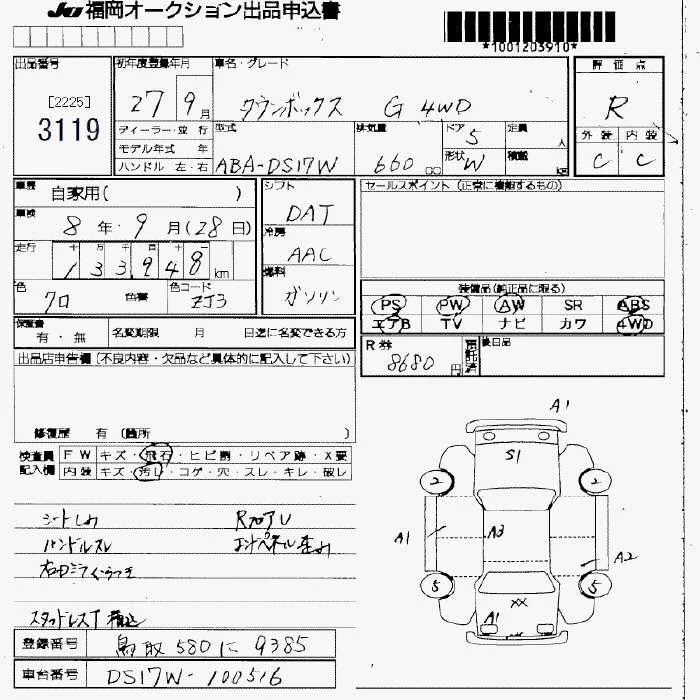 JU 福岡オークション出品申込書
*1001203910*
出品番号
[2225]
3119
初年度登録年月
27 9月
車名・グレード
タウンボックス G 4WD
評価点
R
外装 内装
C C
ディーラー・並行
モデル年式 年
ハンドル 左・右
型式
ABA-DS17W
排気量
660 cc
ドア
5
形状
W
定員
人
積載
kg
車歴
自家用( )
車検
8年・9月(28日)
走行
十 万 千 百 十 一
133948 km
色
クロ 色替
色コード
ZJ3
シフト
DAT
冷房
AAC
燃料
ガソリン
セールスポイント (正常に機能するもの)
装備品(純正品に限る)
PS PW AW SR ABS
エアB TV ナビ カワ 4WD
R券
8680円
預託済
後日品
保証書
有・無
名変期限 月 日迄に名変できる方
出品店申告欄 (不良内容・欠品など具体的に記入して下さい)
修復歴 有 (箇所 )
検査員記入欄
FW キズ・飛石・ヒビ割・リペア跡・X要
内装 キズ・汚れ・コゲ・穴・スレ・キレ・破レ
ハンドルスレ
スタッドレスT 積込
A1
S1
2 2
A1 A3 A2
5 5
A1 XX
登録番号
鳥取 580 に 9385
車台番号
DS17W-100516